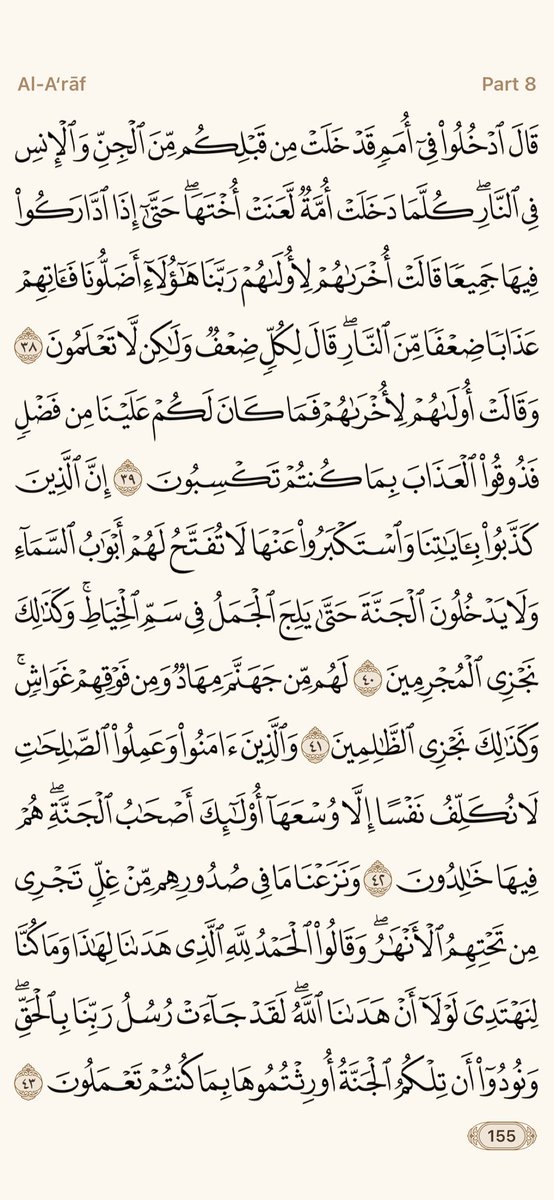 Al-A‘rāf Part 8
قَالَ ٱدۡخُلُواْ فِيٓ أُمَمٖ قَدۡ خَلَتۡ مِن قَبۡلِكُم مِّنَ ٱلۡجِنِّ وَٱلۡإِنسِ
فِي ٱلنَّارِۖ كُلَّمَا دَخَلَتۡ أُمَّةٞ لَّعَنَتۡ أُخۡتَهَاۖ حَتَّىٰٓ إِذَا ٱدَّارَكُواْ
فِيهَا جَمِيعٗا قَالَتۡ أُخۡرَىٰهُمۡ لِأُولَىٰهُمۡ رَبَّنَا هَٰٓؤُلَآءِ أَضَلُّونَا فَـَٔاتِهِمۡ
عَذَابٗا ضِعۡفٗا مِّنَ ٱلنَّارِۖ قَالَ لِكُلّٖ ضِعۡفٞ وَلَٰكِن لَّا تَعۡلَمُونَ ٣٨
وَقَالَتۡ أُولَىٰهُمۡ لِأُخۡرَىٰهُمۡ فَمَا كَانَ لَكُمۡ عَلَيۡنَا مِن فَضۡلٖ
فَذُوقُواْ ٱلۡعَذَابَ بِمَا كُنتُمۡ تَكۡسِبُونَ ٣٩ إِنَّ ٱلَّذِينَ
كَذَّبُواْ بِـَٔايَٰتِنَا وَٱسۡتَكۡبَرُواْ عَنۡهَا لَا تُفَتَّحُ لَهُمۡ أَبۡوَٰبُ ٱلسَّمَآءِ
وَلَا يَدۡخُلُونَ ٱلۡجَنَّةَ حَتَّىٰ يَلِجَ ٱلۡجَمَلُ فِي سَمِّ ٱلۡخِيَاطِۚ وَكَذَٰلِكَ
نَجۡزِي ٱلۡمُجۡرِمِينَ ٤٠ لَهُم مِّن جَهَنَّمَ مِهَادٞ وَمِن فَوۡقِهِمۡ غَوَاشٖۚ
وَكَذَٰلِكَ نَجۡزِي ٱلظَّٰلِمِينَ ٤١ وَٱلَّذِينَ ءَامَنُواْ وَعَمِلُواْ ٱلصَّٰلِحَٰتِ
لَا نُكَلِّفُ نَفۡسًا إِلَّا وُسۡعَهَآ أُوْلَٰٓئِكَ أَصۡحَٰبُ ٱلۡجَنَّةِۖ هُمۡ
فِيهَا خَٰلِدُونَ ٤٢ وَنَزَعۡنَا مَا فِي صُدُورِهِم مِّنۡ غِلّٖ تَجۡرِي
مِن تَحۡتِهِمُ ٱلۡأَنۡهَٰرُۖ وَقَالُواْ ٱلۡحَمۡدُ لِلَّهِ ٱلَّذِي هَدَىٰنَا لِهَٰذَا وَمَا كُنَّا
لِنَهۡتَدِيَ لَوۡلَآ أَنۡ هَدَىٰنَا ٱللَّهُۖ لَقَدۡ جَآءَتۡ رُسُلُ رَبِّنَا بِٱلۡحَقِّۖ
وَنُودُوٓاْ أَن تِلۡكُمُ ٱلۡجَنَّةُ أُورِثۡتُمُوهَا بِمَا كُنتُمۡ تَعۡمَلُونَ ٤٣
155